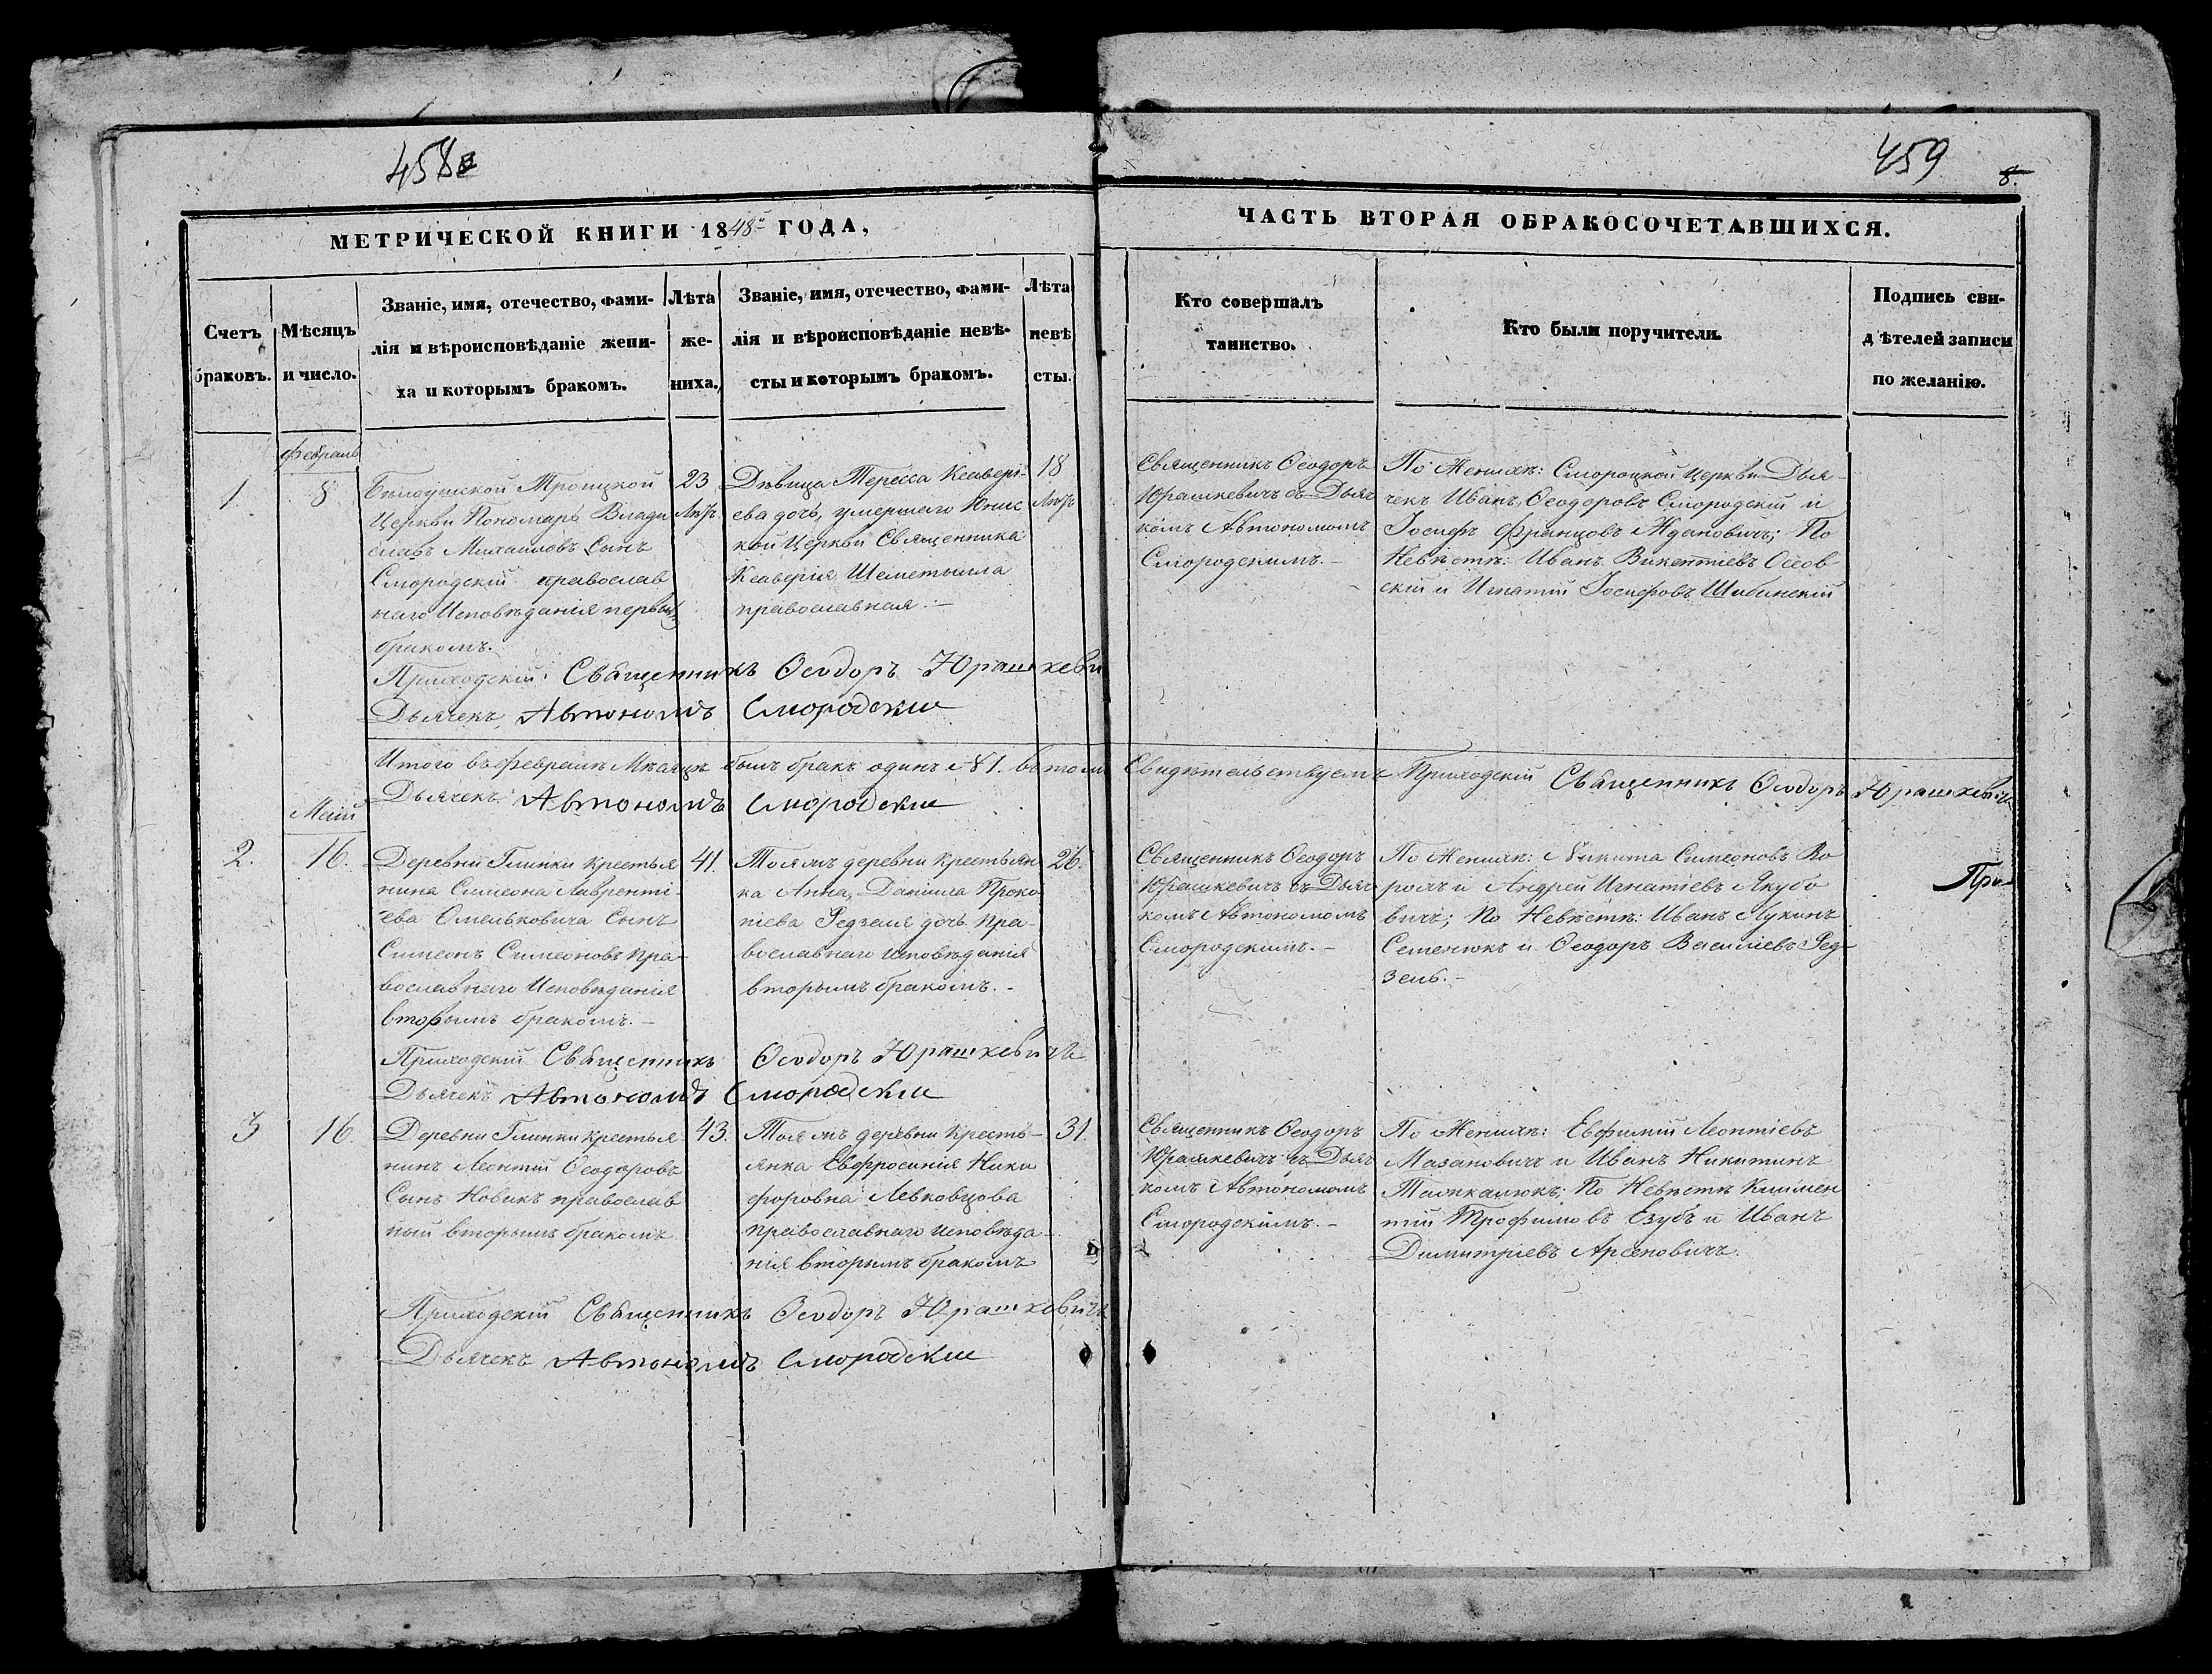 458
459
8.
МЕТРИЧЕСКОЙ КНИГИ 1848го ГОДА,
ЧАСТЬ ВТОРАЯ ОБРАКОСОЧЕТАВШИХСЯ.
Счетъ браковъ.
Мѣсяцъ и число.
Званіе, имя, отечество, фами-
лія и вѣроисповѣданіе жени-
ха и которымъ бракомъ.
Лѣта
же-
ниха.
Званіе, имя, отечество, фами-
лія и вѣроисповѣданіе невѣ-
сты и которымъ бракомъ.
Лѣта
невѣ
сты.
Кто совершалъ
таинство.
Кто были поручители.
Подпись сви-
дѣтелей записи
по желанію.
Февраль
1.
8
Троицкой
Церкви Пономарь Влади
славъ Михаиловъ Сынъ
Смородскій православ
наго Исповѣданія первымъ
бракомъ.
23
Лѣтъ
Дѣвица Тересса Ксавері-
ева дочь, умершаго
кой Церкви Священника
Ксаверія Шеметылла
православная.—
18
Лѣтъ
Священникъ Ѳеодоръ
Юрашкевичъ съ Дьяч
комъ Автономомъ
Смородскимъ.—
По Женихѣ: Смороцкой Церкви Дья-
чекъ Иванъ Ѳеодоровъ Смородскій и
Іосифъ Францовъ Ждановичъ; По
Невѣстѣ: Иванъ Викентіевъ Осов
скій и Игнатій Іосифовъ Шибинскій
Приходскій Священникъ Ѳеодоръ Юрашкеви
Дьячекъ Автономъ Смородскій
Итого въ Февралѣ Мѣсяцѣ былъ бракъ одинъ №1. въ томъ Свидѣтельствуемъ Приходскій Священникъ Ѳеодоръ Юрашкевичъ
Дьячекъ Автономъ Смородскій
Маій
2.
16.
Деревни Глинки крестья
нина Симеона Лавренті-
ева Омельковича Сынъ
Симеонъ Симеоновъ пра-
вославнаго Исповѣданія
вторымъ бракомъ.—
41.
Тояжъ деревни крестьян
ка Анна, Даніила Проко
піева Редзеля дочь пра-
вославнаго исповѣданія
вторымъ бракомъ.-
26.
Священникъ Ѳеодоръ
Юрашкевичъ съ Дьяч
комъ Автономомъ
Смородскимъ.—
По Женихѣ: Никита Симеоновъ Ко
роль и Андрей Игнатіевъ Якубо
вичъ; По Невѣстѣ: Иванъ Лукинъ
Семенюкъ и Ѳеодоръ Василіевъ Ред-
зель.—
При-
Приходскій Священникъ Ѳеодоръ Юрашкевичъ
Дьячекъ Автономъ Смородскій
3
16.
Деревни Глинки крестья
нинъ Леонтій Ѳеодоровъ
Сынъ Новикъ православ
ный вторымъ бракомъ
43.
Тояжъ деревни кресть-
янка Евфросинія Ники
форовна Левковцова
православнаго исповѣда-
нія вторымъ бракомъ
31.
Священникъ Ѳеодоръ
Юрашкевичъ съ Дьяч
комъ Автономомъ
Смородскимъ.—
По Женихѣ: Евфимій Леонтіевъ
Мазановичъ и Иванъ Никитинъ
По Невѣстѣ Климен
тій Трофимовъ Езубъ и Иванъ
Димитріевъ Арсеновичъ.
Приходскій Священникъ Ѳеодоръ Юрашкевичъ
Дьячекъ Автономъ Смородскій